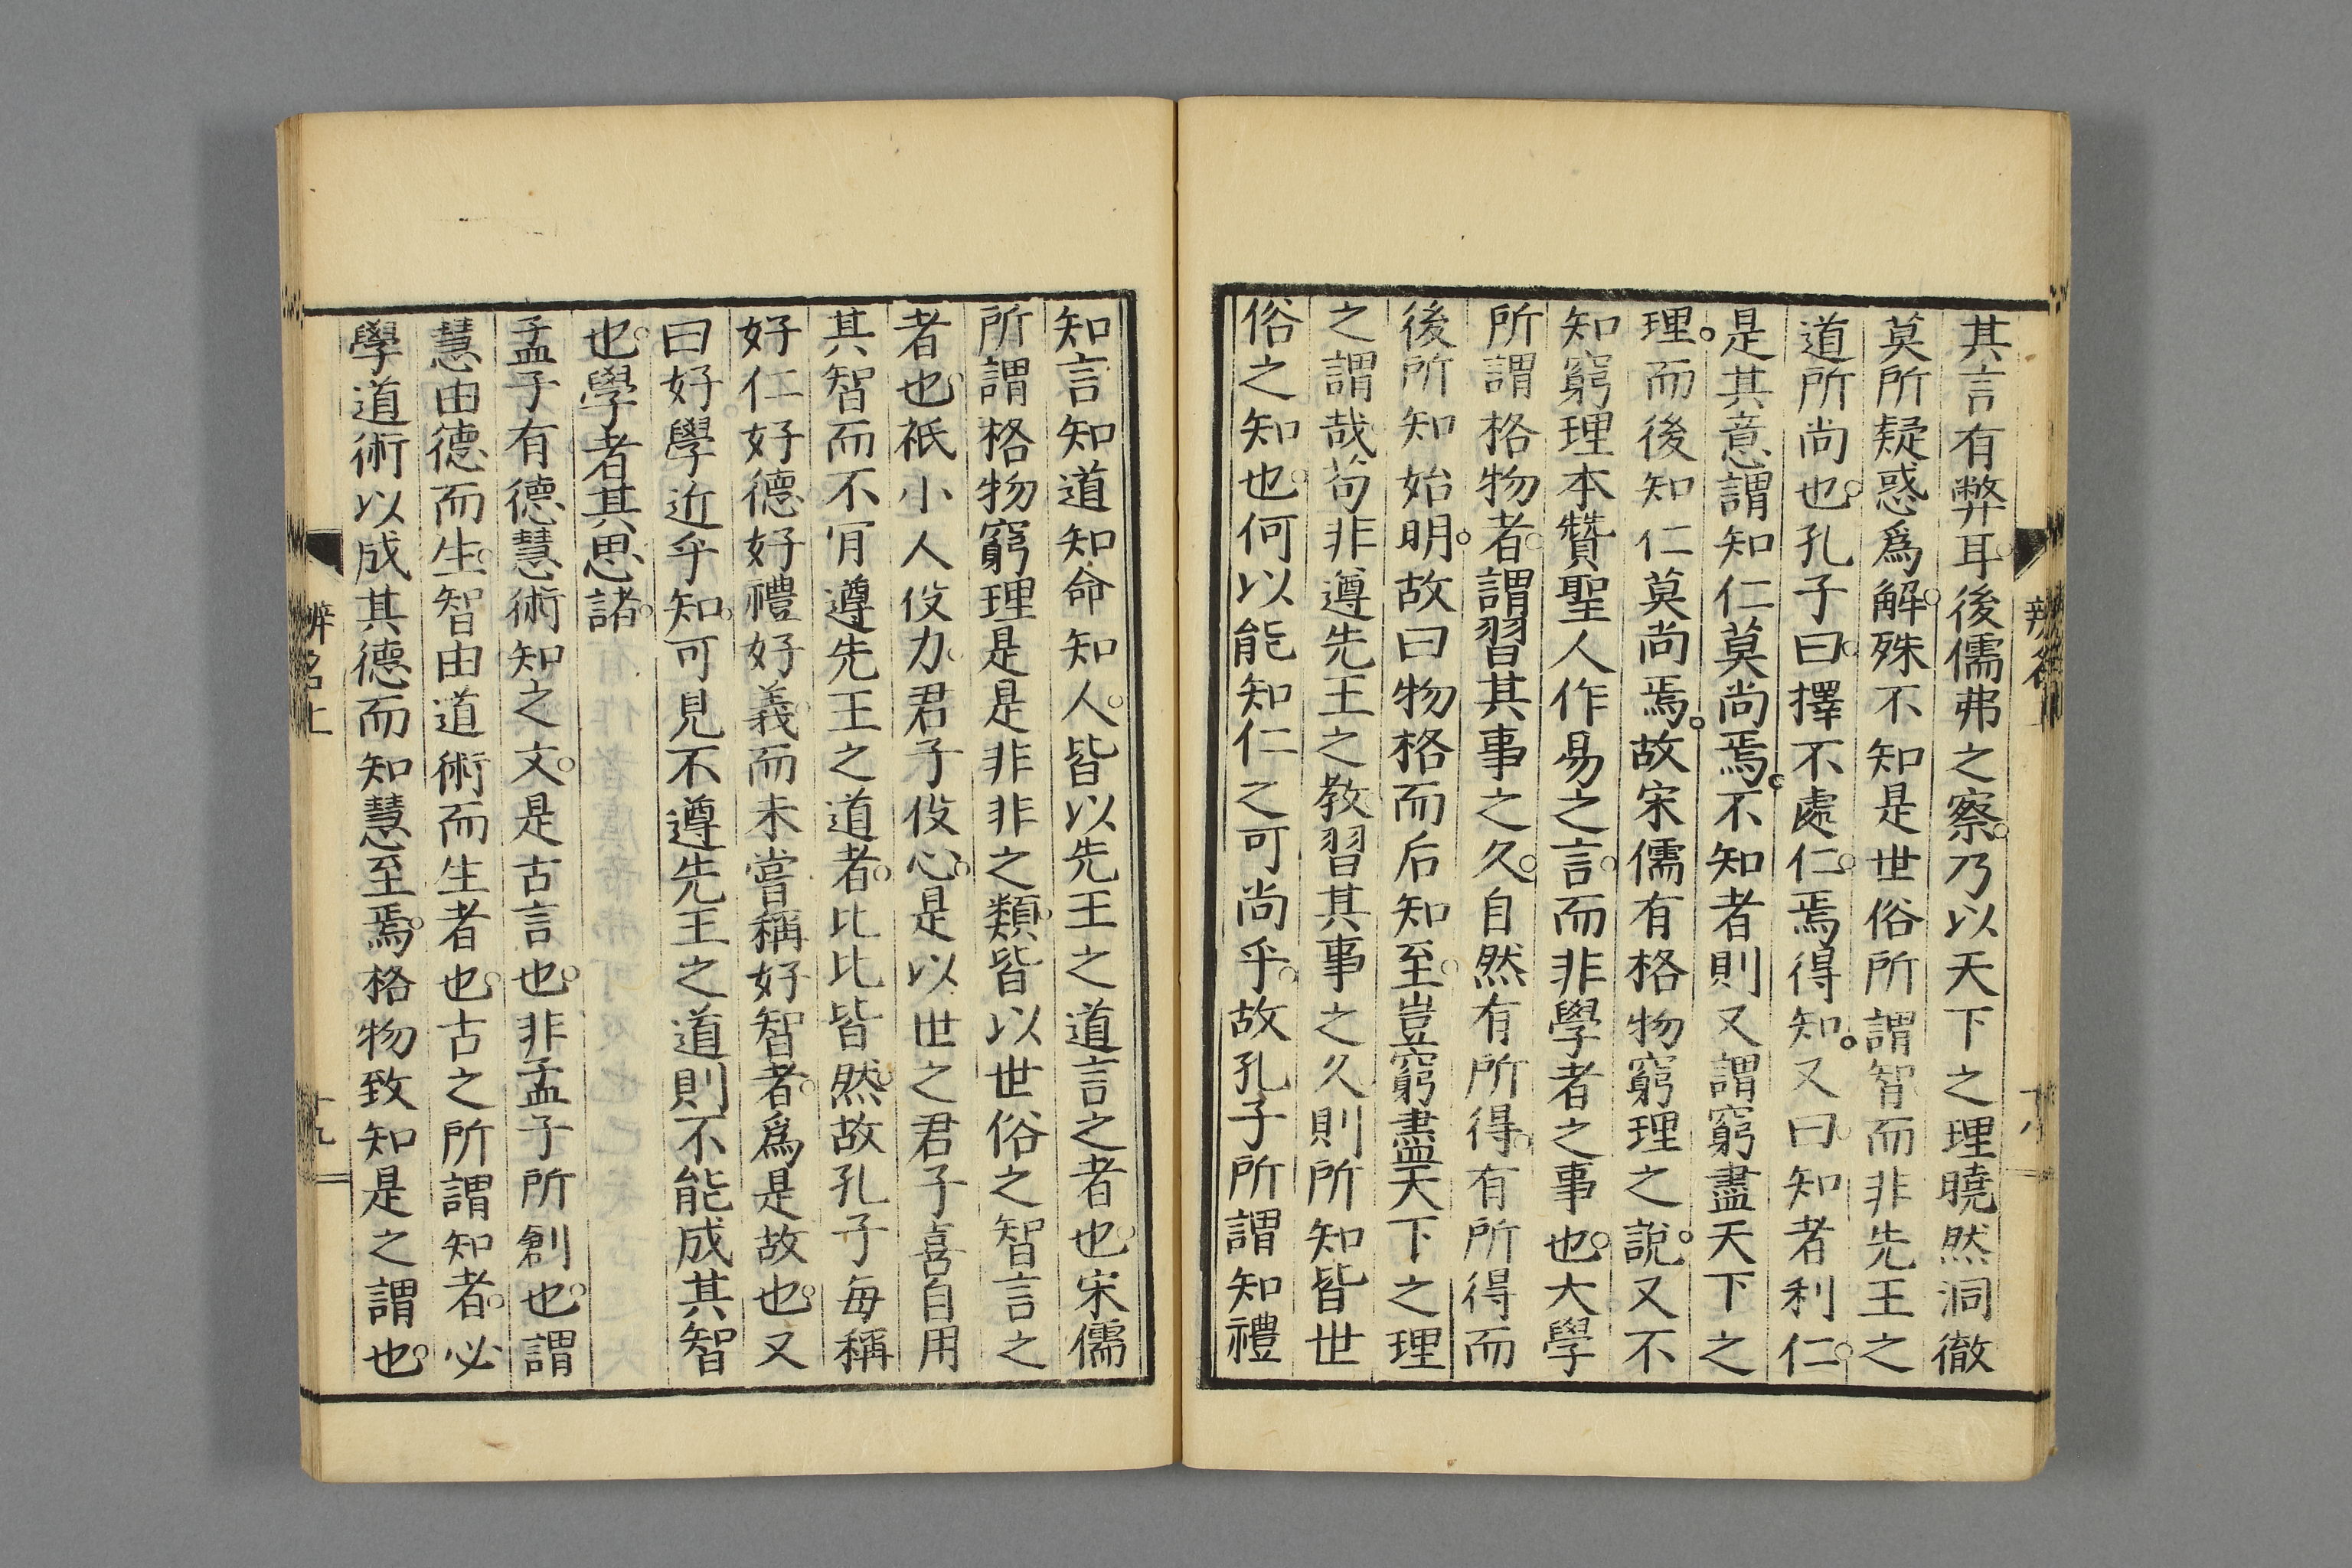 其言有弊耳。後儒弗之察。乃以天下之理曉然洞徹
莫所疑惑爲解。殊不知是世俗所謂智而非先王之
道所尚也。孔子曰。擇不處仁。焉得知。又曰。知者利仁。
是其意謂知仁莫尚焉。不知者則又謂窮盡天下之
理。而後知仁莫尚焉。故宋儒有格物窮理之說。又不
知窮理本贊聖人作易之言。而非學者之事也。大學
所謂格物者。謂習其事之久。自然有所得。有所得而
後所知始明。故曰物格而后知至。豈窮盡天下之理
之謂哉。苟非遵先王之教。習其事之久。則所知皆世
俗之知也。何以能知仁之可尚乎。故孔子所謂知禮
知言知道知命知人。皆以先王之道言之者也。宋儒
所謂格物窮理是是非非之類。皆以世俗之智言之
者也。祇小人伇力。君子伇心。是以世之君子喜自用
其智而不肎遵先王之道者。比比皆然。故孔子每稱
好仁好德好禮好義。而未嘗稱好智者。爲是故也。又
曰好學近乎知。可見不遵先王之道則不能成其智
也。學者其思諸。
孟子有德慧術知之文。是古言也。非孟子所創也。謂
慧由德而生。智由道術而生者也。古之所謂知者。必
學道術以成其德而知慧至焉。格物致知是之謂也。
辨名上
十九